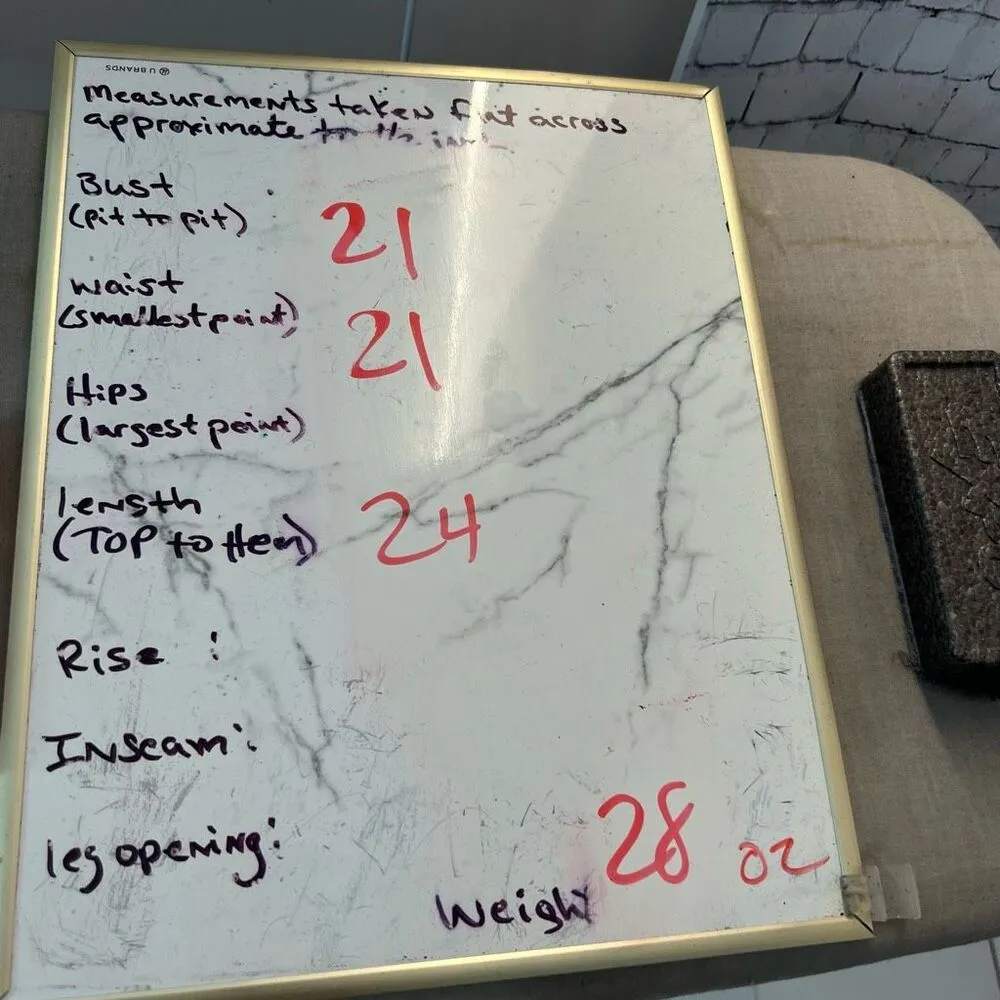 U BRANDS
Measurements taken flat across
approximate to the
Bust
(pit to pit) 21
Waist
(smallest point) 21
Hips
(largest point)
length
(TOP to Hem) 24
Rise :
INseam :
leg opening :
28 oz
Weight